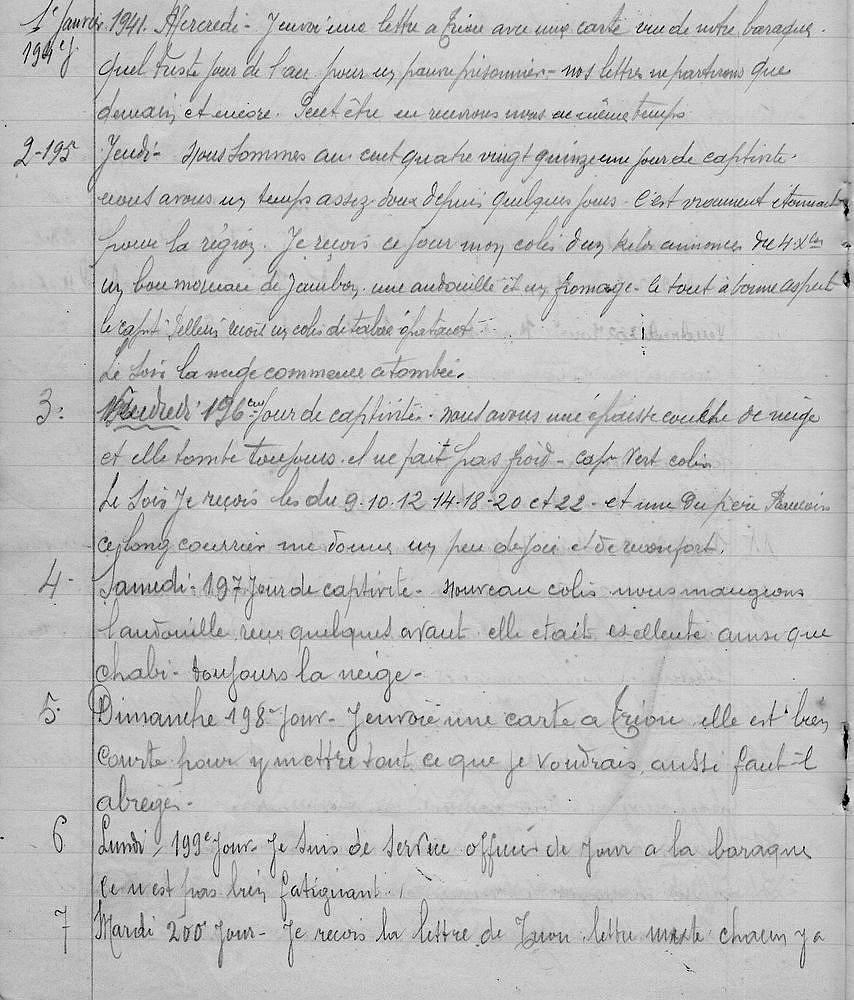 1er Janvier 1941. Mercredi - J'envoi une lettre a Trion avec une carte vue de notre baraque.
194e j Quel triste jour de l'an pour un pauvre prisonnier - nos lettres ne partirons que
demain, et encore. Peut être en recevrons nous en même temps
2-195 Jeudi - Nous sommes au cent quatre vingt quinzeme jour de captivite.
nous avons un temps assez doux depuis quelques jours - C'est vraiment étonnant
pour la région. Je reçois ce jour mon colis d'un kilo annoncé du 4 Xbre
un bon morceau de Jambon. une andouille et un fromage - le tout à bonne aspect
le capt recoit un colis de tabac épatant
Le soir la neige commence a tomber.
3. Vendredi 196eme Jour de captivité. nous avons une épaisse couche de neige
et elle tombe toujours. il ne fait pas froid - cap Vert colis
Le soir Je reçois les du 9.10.12.14.18-20 et 22 - et une du pere
ce long courrier me donne un peu de joie et de reconfort.
4 - Samedi - 197 Jour de captivite - Nouveau colis nous mangeons
l'andouille recu quelques avant elle etait excellente ainsi que
chabi - toujours la neige -
5. Dimanche 198e Jour - J'envoie une carte a Trion elle est bien
courte pour y mettre tout ce que Je voudrais, aussi faut-il
abreger.
6 Lundi, 199e Jour - Je suis de service officier de Jour a la baraque
ce n'est pas bien fatiguant.
7 Mardi 200e Jour - Je reçois la lettre de Trion lettre chacun y a